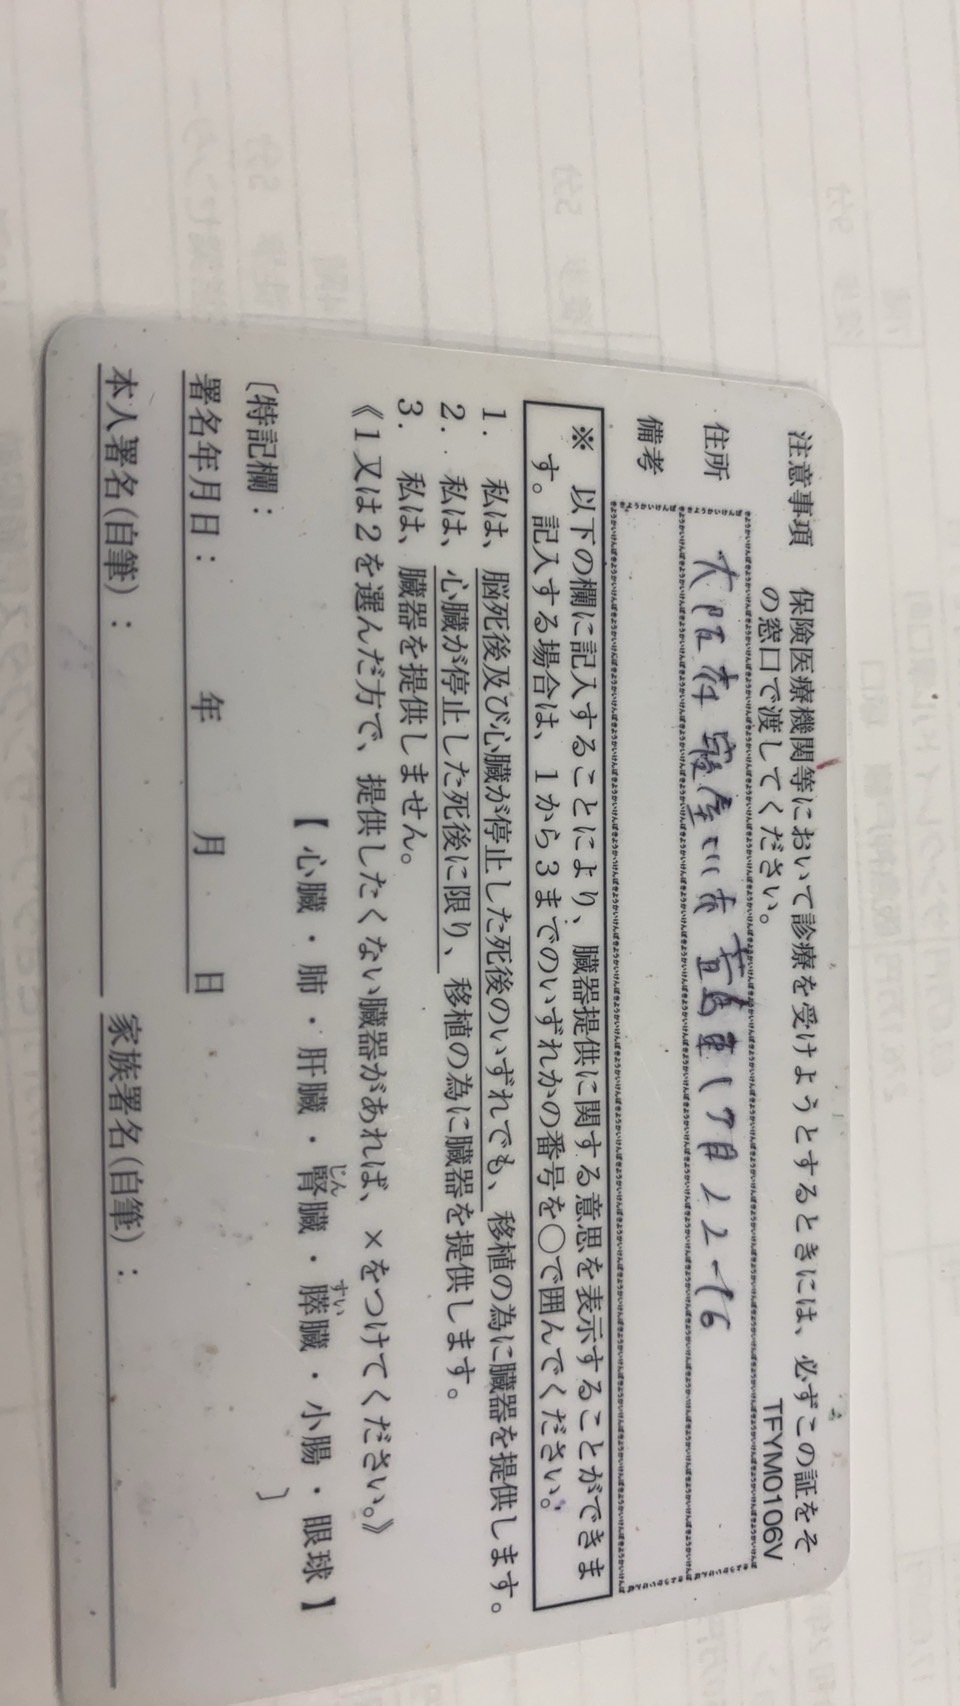 注意事項 保険医療機関等において診療を受けようとするときには、必ずこの証をそ
の窓口で渡してください。
TFYM0106V
住所 大阪府寝屋川市萱島東1丁目22-16
備考
※ 以下の欄に記入することにより、臓器提供に関する意思を表示することができま
す。記入する場合は、1から3までのいずれかの番号を○で囲んでください。
1. 私は、脳死後及び心臓が停止した死後のいずれでも、移植の為に臓器を提供します。
2. 私は、心臓が停止した死後に限り、移植の為に臓器を提供します。
3. 私は、臓器を提供しません。
《1又は2を選んだ方で、提供したくない臓器があれば、×をつけてください。》
【 心臓・肺・肝臓・腎臓・膵臓・小腸・眼球 】
じん すい
〔特記欄: 〕
署名年月日: 年 月 日
本人署名(自筆): 家族署名(自筆):